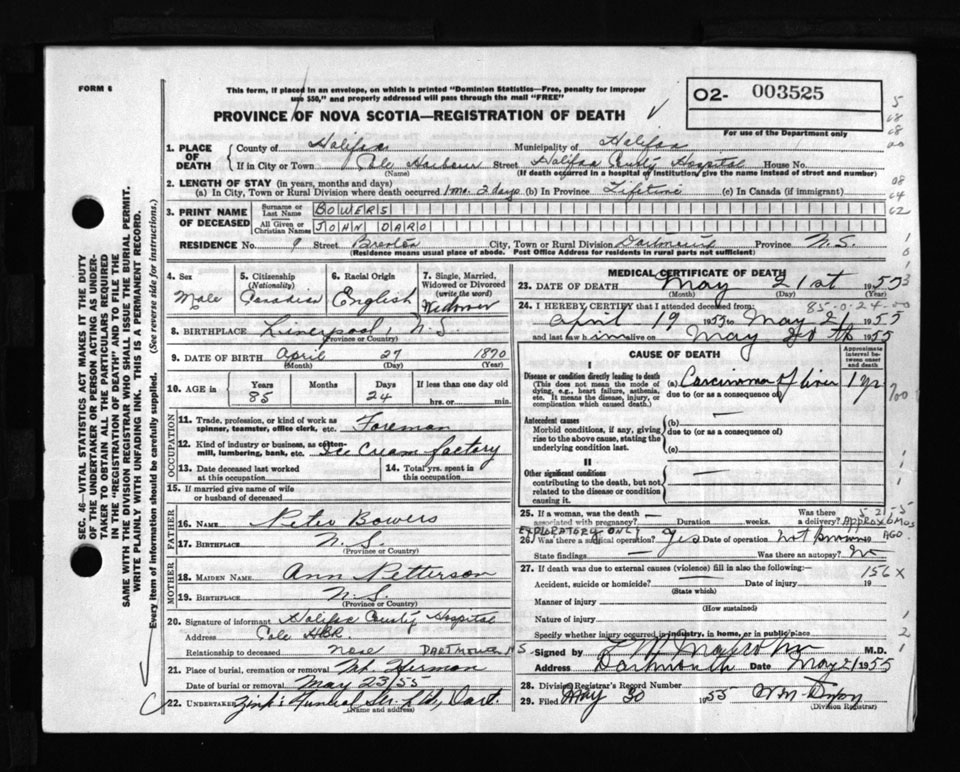 FORM 6
This form, if placed in an envelope, on which is printed "Dominion Statistics—Free, penalty for improper
use $50," and properly addressed will pass through the mail "FREE"
PROVINCE OF NOVA SCOTIA—REGISTRATION OF DEATH
02- 003525
For use of the Department only
SEC. 46—VITAL STATISTICS ACT MAKES IT THE DUTY
OF THE UNDERTAKER OR PERSON ACTING AS UNDER-
TAKER TO OBTAIN ALL THE PARTICULARS REQUIRED
IN THE "REGISTRATION OF DEATH" AND TO FILE THE
SAME WITH THE DIVISION REGISTRAR WHO SHALL ISSUE THE BURIAL PERMIT.
WRITE PLAINLY WITH UNFADING INK. THIS IS A PERMANENT RECORD.
Every item of information should be carefully supplied. (See reverse side for instructions.)
1. PLACE OF DEATH
County of Halifax Municipality of Halifax
If in City or Town Cole Harbour Street Halifax County Hospital House No.
(Name) (If death occurred in a hospital or institution, give the name instead of street and number)
2. LENGTH OF STAY (in years, months and days)
(a) In City, Town or Rural Division where death occurred 1 mo. 2 days (b) In Province Lifetime (c) In Canada (if immigrant)
3. PRINT NAME OF DECEASED
Surname or Last Name BOWERS
All Given or Christian Names JOHN DARO
RESIDENCE No. 9 Street Brenton City, Town or Rural Division Dartmouth Province N.S.
(Residence means usual place of abode. Post Office Address for residents in rural parts not sufficient)
4. Sex Male
5. Citizenship (Nationality) Canadian
6. Racial Origin English
7. Single, Married, Widowed or Divorced (write the word) Widower
8. BIRTHPLACE Liverpool, N.S.
(Province or Country)
9. DATE OF BIRTH April 27 1870
(Month) (Day) (Year)
10. AGE in Years 85 Months Days 24 If less than one day old
hrs. or min.
OCCUPATION
11. Trade, profession, or kind of work as
spinner, teamster, office clerk, etc. Foreman
12. Kind of industry or business, as cotton-
mill, lumbering, bank, etc. Ice Cream factory
13. Date deceased last worked
at this occupation
14. Total yrs. spent in
this occupation
15. If married give name of wife
or husband of deceased
FATHER
16. NAME Peter Bowers
17. BIRTHPLACE N.S.
(Province or Country)
MOTHER
18. MAIDEN NAME Ann Petterson
19. BIRTHPLACE N.S.
(Province or Country)
20. Signature of informant Halifax County Hospital
Address Cole HBR.
Relationship to deceased None DARTMOUTH NS
21. Place of burial, cremation or removal Mt. Herman
Date of burial or removal May 23/55
22. UNDERTAKER Zink's Funeral Ser. Ltd, Dart.
(Name and address)
MEDICAL CERTIFICATE OF DEATH
23. DATE OF DEATH May 21st 1955
(Month) (Day) (Year)
85-0-24
24. I HEREBY CERTIFY that I attended deceased from:
April 19 1955 to May 21 1955
and last saw him alive on May 20th 1955
CAUSE OF DEATH
Approximate interval between onset and death
I
Disease or condition directly leading to death
(This does not mean the mode of
dying, e.g., heart failure, asthenia,
etc. It means the disease, injury, or
complication which caused death.)
(a) Carcinoma of liver 1 yr
due to (or as a consequence of)
Antecedent causes
Morbid conditions, if any, giving
rise to the above cause, stating the
underlying condition last.
(b) —
due to (or as a consequence of)
(c)
II
Other significant conditions
contributing to the death, but not
related to the disease or condition
causing it.
—
25. If a woman, was the death —
associated with pregnancy? Duration weeks. Was there a delivery?
5 21 55
EXPLORATORY ONLY APPROX 6 MOS AGO
26. Was there a surgical operation? Yes Date of operation not known
State findings — Was there an autopsy? No
27. If death was due to external causes (violence) fill in also the following:
156X
Accident, suicide or homicide? Date of injury 19
(State which)
Manner of injury
(How sustained)
Nature of injury
Specify whether injury occurred in industry, in home, or in public place
Signed by M.D.
Address Dartmouth Date May 21 1955
28. Division Registrar's Record Number
29. Filed May 30 1955
(Division Registrar)